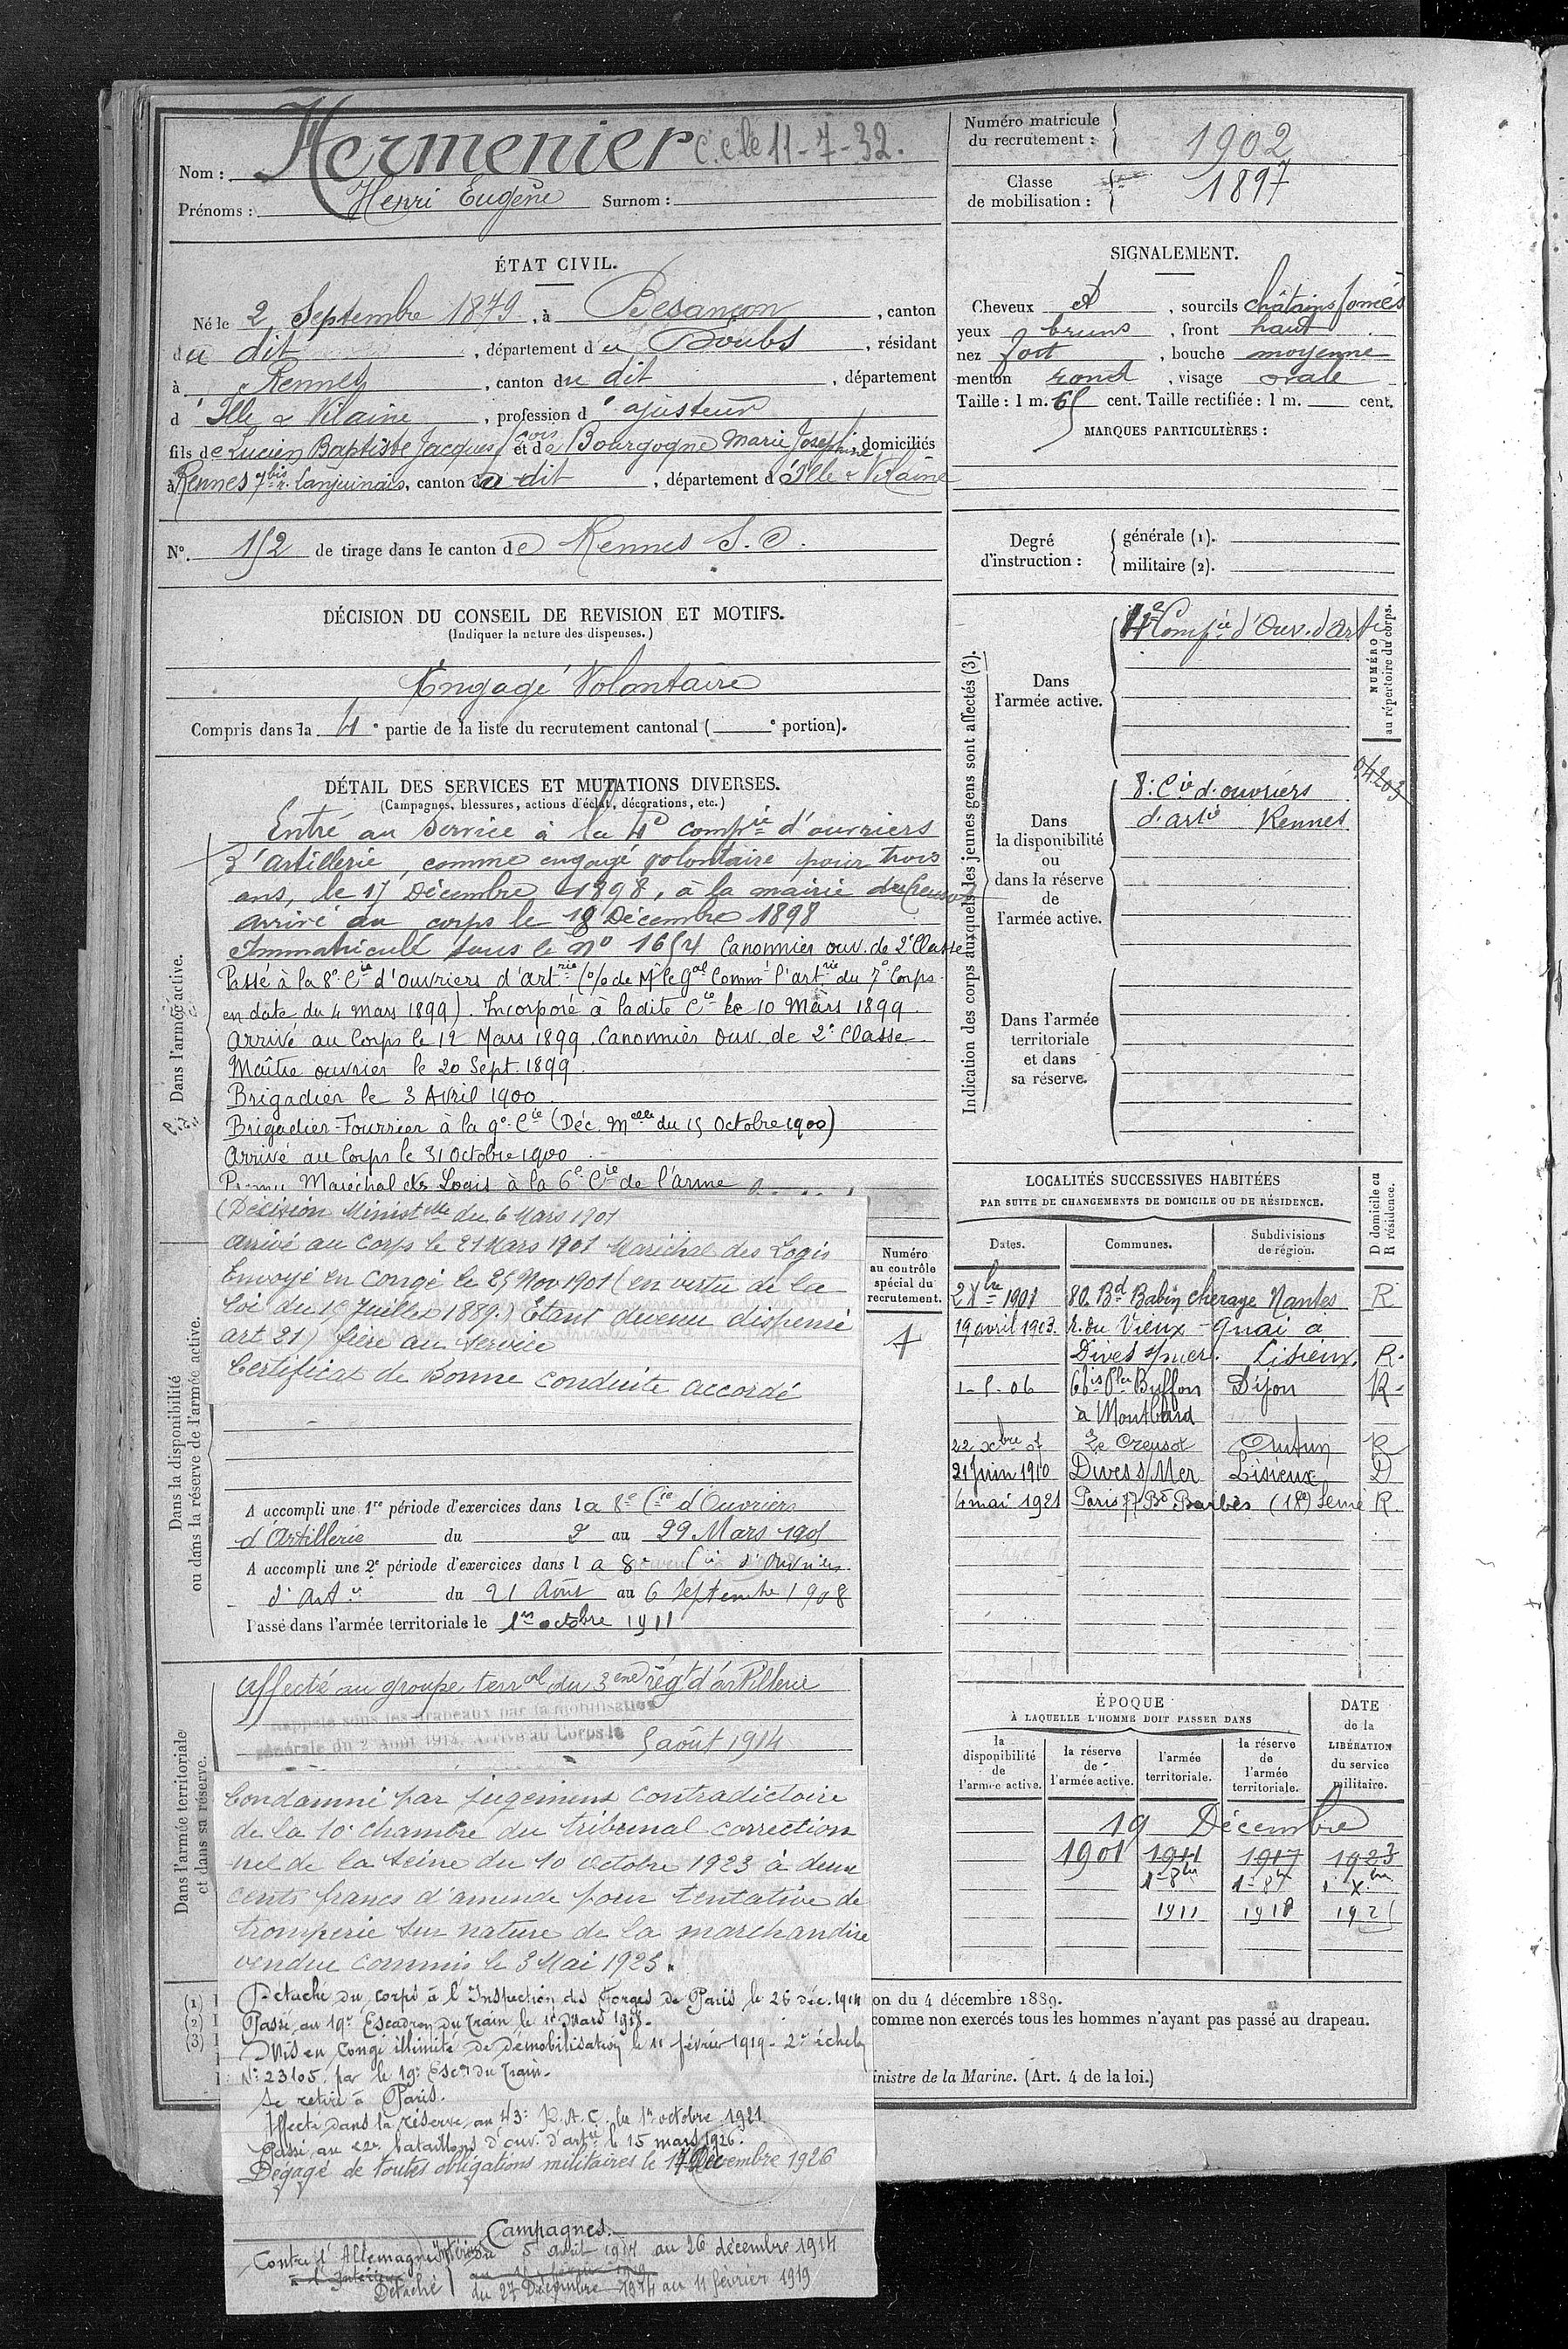 Nom : Hermenier C.c le 11-7-32.
Prénoms : Henri Eugène Surnom :
Numéro matricule du recrutement : 1902
Classe de mobilisation : 1897
ÉTAT CIVIL.
Né le 2 Septembre 1879, à Besançon, canton
du dit, département du Doubs, résidant
à Rennes, canton du dit, département
d'Ille & Vilaine, profession d'ajusteur
fils de Lucien Baptiste Jacques et de Bourgogne Marie Josephine domiciliés
à Rennes 7bis r. Lanjuinais, canton du dit, département d'Ille & Vilaine
N° 152 de tirage dans le canton de Rennes S.O.
SIGNALEMENT.
Cheveux et, sourcils châtains foncés
yeux bruns, front haut
nez fort, bouche moyenne
menton rond, visage ovale
Taille : 1 m. 65 cent. Taille rectifiée : 1 m. cent.
MARQUES PARTICULIÈRES :
Degré d'instruction : générale (1).
militaire (2).
DÉCISION DU CONSEIL DE REVISION ET MOTIFS.
(Indiquer la nature des dispenses.)
Engagé Volontaire
Compris dans la 4e partie de la liste du recrutement cantonal ( e portion).
DÉTAIL DES SERVICES ET MUTATIONS DIVERSES.
(Campagnes, blessures, actions d'éclat, décorations, etc.)
Dans l'armée active.
Entré au service à la 4e compie d'ouvriers
d'artillerie, comme engagé volontaire pour trois
ans, le 17 Décembre 1898, à la mairie du Creusot
arrivé au corps le 18 Décembre 1898
Immatriculé sous le n° 1654 Canonnier ouv. de 2e Classe
Passé à la 8e Cie d'Ouvriers d'artrie (o/ de Mr le Gal Commt l'artrie du 7e Corps
en date du 4 mars 1899). Incorporé à ladite Cie le 10 Mars 1899.
Arrivé au Corps le 12 Mars 1899. Canonnier Ouv. de 2e Classe
Maître ouvrier le 20 Sept. 1899.
Brigadier le 3 Avril 1900.
Brigadier-Fourrier à la 9e Cie (Déc. Melle du 15 Octobre 1900)
Arrivé au Corps le 31 Octobre 1900
Promu Maréchal des Logis à la 6e Cie de l'arme
(Décision Ministelle du 6 Mars 1901
arrivé au corps le 21 Mars 1901 Maréchal des Logis
Envoyé en congé le 25 Nov 1901 (en vertu de la
loi du 15 Juillet 1889.) Étant devenu dispensé
art 21) frère au service
Certificat de Bonne conduite accordé
Numéro au contrôle spécial du recrutement.
Dans la disponibilité ou dans la réserve de l'armée active.
A accompli une 1re période d'exercices dans la 8e Cie d'Ouvriers
d'Artillerie du 2 au 29 Mars 1905
A accompli une 2e période d'exercices dans la 8e Cie d'Ouvriers
d'Artie du 21 Août au 6 Septembre 1908
Passé dans l'armée territoriale le 1er octobre 1911
Dans l'armée territoriale et dans sa réserve.
Affecté au groupe terral du 3eme régt d'artillerie
Rappelé sous les drapeaux par la mobilisation
générale du 2 Août 1914. Arrivé au Corps le 5 août 1914
Condamné par jugement contradictoire
de la 10e chambre du tribunal correction
nel de la Seine du 10 octobre 1923 à deux
cents francs d'amende pour tentative de
tromperie sur nature de la marchandise
vendue commis le 3 Mai 1923.
Détaché du corps à l'Inspection des Forges de Paris le 26 déc. 1914
Passé au 19e Escadron du Train le 1er Mars 1918.
Mis en congé illimité de démobilisation le 11 février 1919 - 2e échelon
N° 23105 par le 19e Escon du Train.
Se retire à Paris.
Affecté dans la réserve au 43e R.A.C. le 1er octobre 1921
Passé au 22e bataillon d'ouv. d'artie le 15 mars 1926.
Dégagé de toutes obligations militaires le 17 Décembre 1926
Campagnes.
Contre l'Allemagne Intérieur du 5 août 1914 au 26 décembre 1914
à l'Intérieur
Détaché du 27 Décembre 1914 au 11 février 1919
Indication des corps auxquels les jeunes gens sont affectés (3).
NUMÉRO au répertoire du corps.
Dans l'armée active.
4e Compie d'Ouv. d'Artie
Dans la disponibilité ou dans la réserve de l'armée active.
8e Cie d'ouvriers
d'artie Rennes
04203
Dans l'armée territoriale et dans sa réserve.
LOCALITÉS SUCCESSIVES HABITÉES
PAR SUITE DE CHANGEMENTS DE DOMICILE OU DE RÉSIDENCE.
D domicile ou R résidence.
Dates. Communes. Subdivisions de région.
2 Xbre 1901 80 Bd Babin Cherage Nantes R
19 avril 1903. r. du Vieux - Quai a
Dives s/mer. Lisieux. R.
1-5-06 6bis Buffon Dijon R.
à Montbard
22 xbre 07 Le Creusot Autun R
21 Juin 1910 Dives s/Mer Lisieux D
4 mai 1921 Paris 77 Bd Barbès (18e) Seine R
ÉPOQUE
À LAQUELLE L'HOMME DOIT PASSER DANS
DATE de la LIBÉRATION du service militaire.
la disponibilité de l'armée active.
la réserve de l'armée active.
l'armée territoriale.
la réserve de l'armée territoriale.
19 Décembre
1901 1911 1917 1923
1er 8bre 1er 8bre 1 Xbre
1911 1918 192
(1)
(2)
(3)
on du 4 décembre 1889.
comme non exercés tous les hommes n'ayant pas passé au drapeau.
inistre de la Marine. (Art. 4 de la loi.)